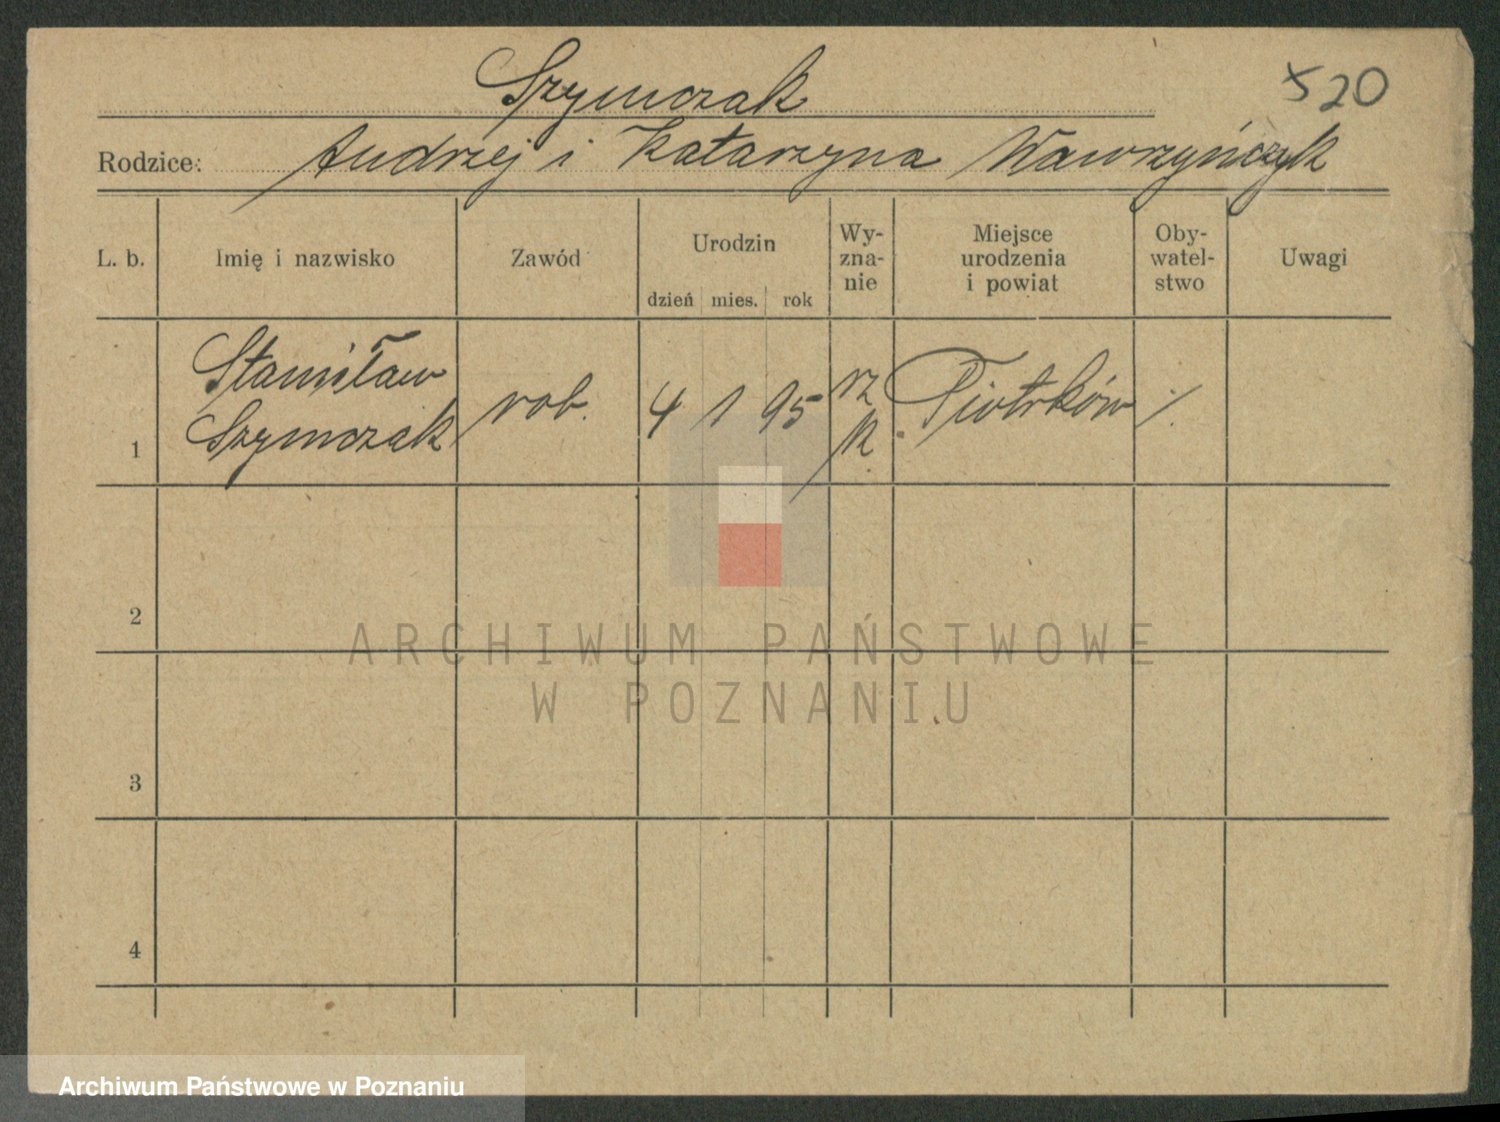 Szymczak
520
Rodzice: Andrzej i Katarzyna Wawrzyńczyk
L. b. Imię i nazwisko Zawód Urodzin Wy-zna-nie Miejsce urodzenia i powiat Oby-watel-stwo Uwagi
dzień mies. rok
1 Stanisław Szymczak rob. 4 1 95 rz k. Piotrków /.
2
ARCHIWUM PAŃSTWOWE
W POZNANIU
3
4
Archiwum Państwowe w Poznaniu